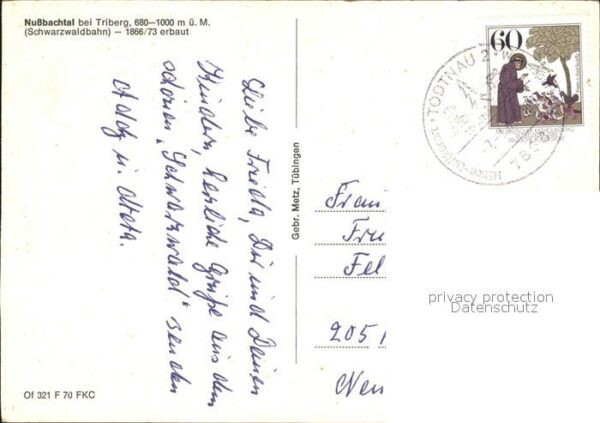 Nußbachtal bei Triberg, 680—1000 m ü. M.
(Schwarzwaldbahn) — 1866/73 erbaut
Liebe Frieda, Dir und Deinen
Kindern, herzliche Grüße aus dem
schönen „Schwarzwald" senden
Gebr. Metz, Tübingen
60
TODTNAU 2
Frau
Fri
Fel
205
privacy protection
Datenschutz
Of 321 F 70 FKC